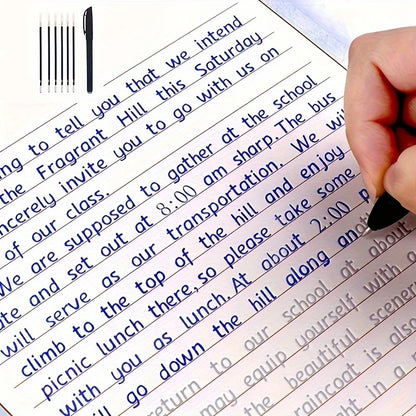 ing to tell you that we intend
the Fragrant Hill this Saturday
sincerely invite you to go with us on
of our class.
We are supposed to gather at the school
and set out at 8:00 am sharp. The bus
will serve as our transportation. We will
climb to the top of the hill and enjoy
picnic lunch there, so please take some
with you as lunch. At about 2:00 p
go down the hill along another
return to our school at about
may equip yourself with a
the beautiful scenery
raincoat is also
it in a